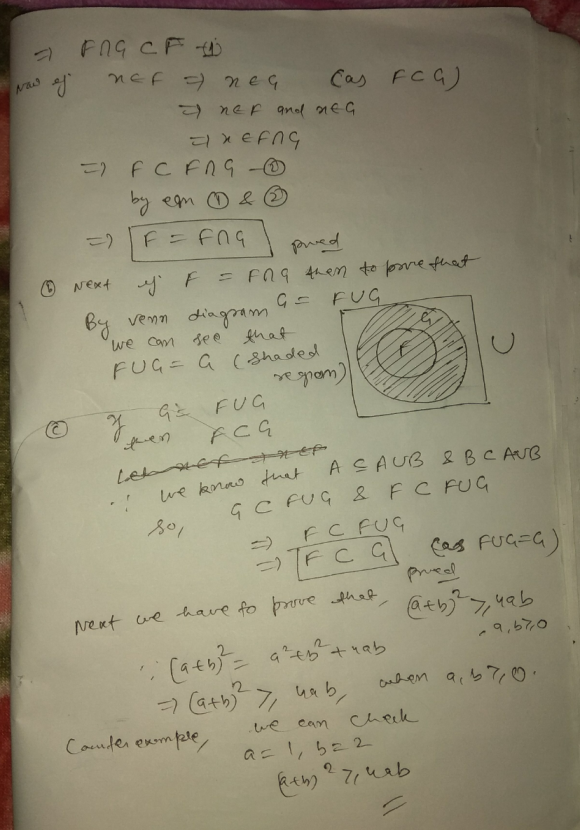 ⇒ F∩G ⊂ F -①
Now if x∈F ⇒ x∈G (as F⊂G)
⇒ x∈F and x∈G
⇒ x∈F∩G
⇒ F ⊂ F∩G -②
by eqn ① & ②
⇒ F = F∩G proved
ⓑ Next if F = F∩G then to prove that
G = F∪G
By venn diagram
we can see that
F∪G = G (shaded
region)
G
F
U
ⓒ If G = F∪G
then F⊂G
Let x∈F ⇒ x∈F
∵ we know that A⊆A∪B & B⊂A∪B
so, G ⊂ F∪G & F ⊂ F∪G
⇒ F ⊂ F∪G
⇒ F ⊂ G (as F∪G=G)
proved
Next we have to prove that, (a+b)² ≥ 4ab
, a,b≥0
∵ (a+b)² = a²+b²+4ab
⇒ (a+b)² ≥ 4ab, when a,b≥0.
Counter example, we can check
a=1, b=2
(a+b)² ≥ 4ab